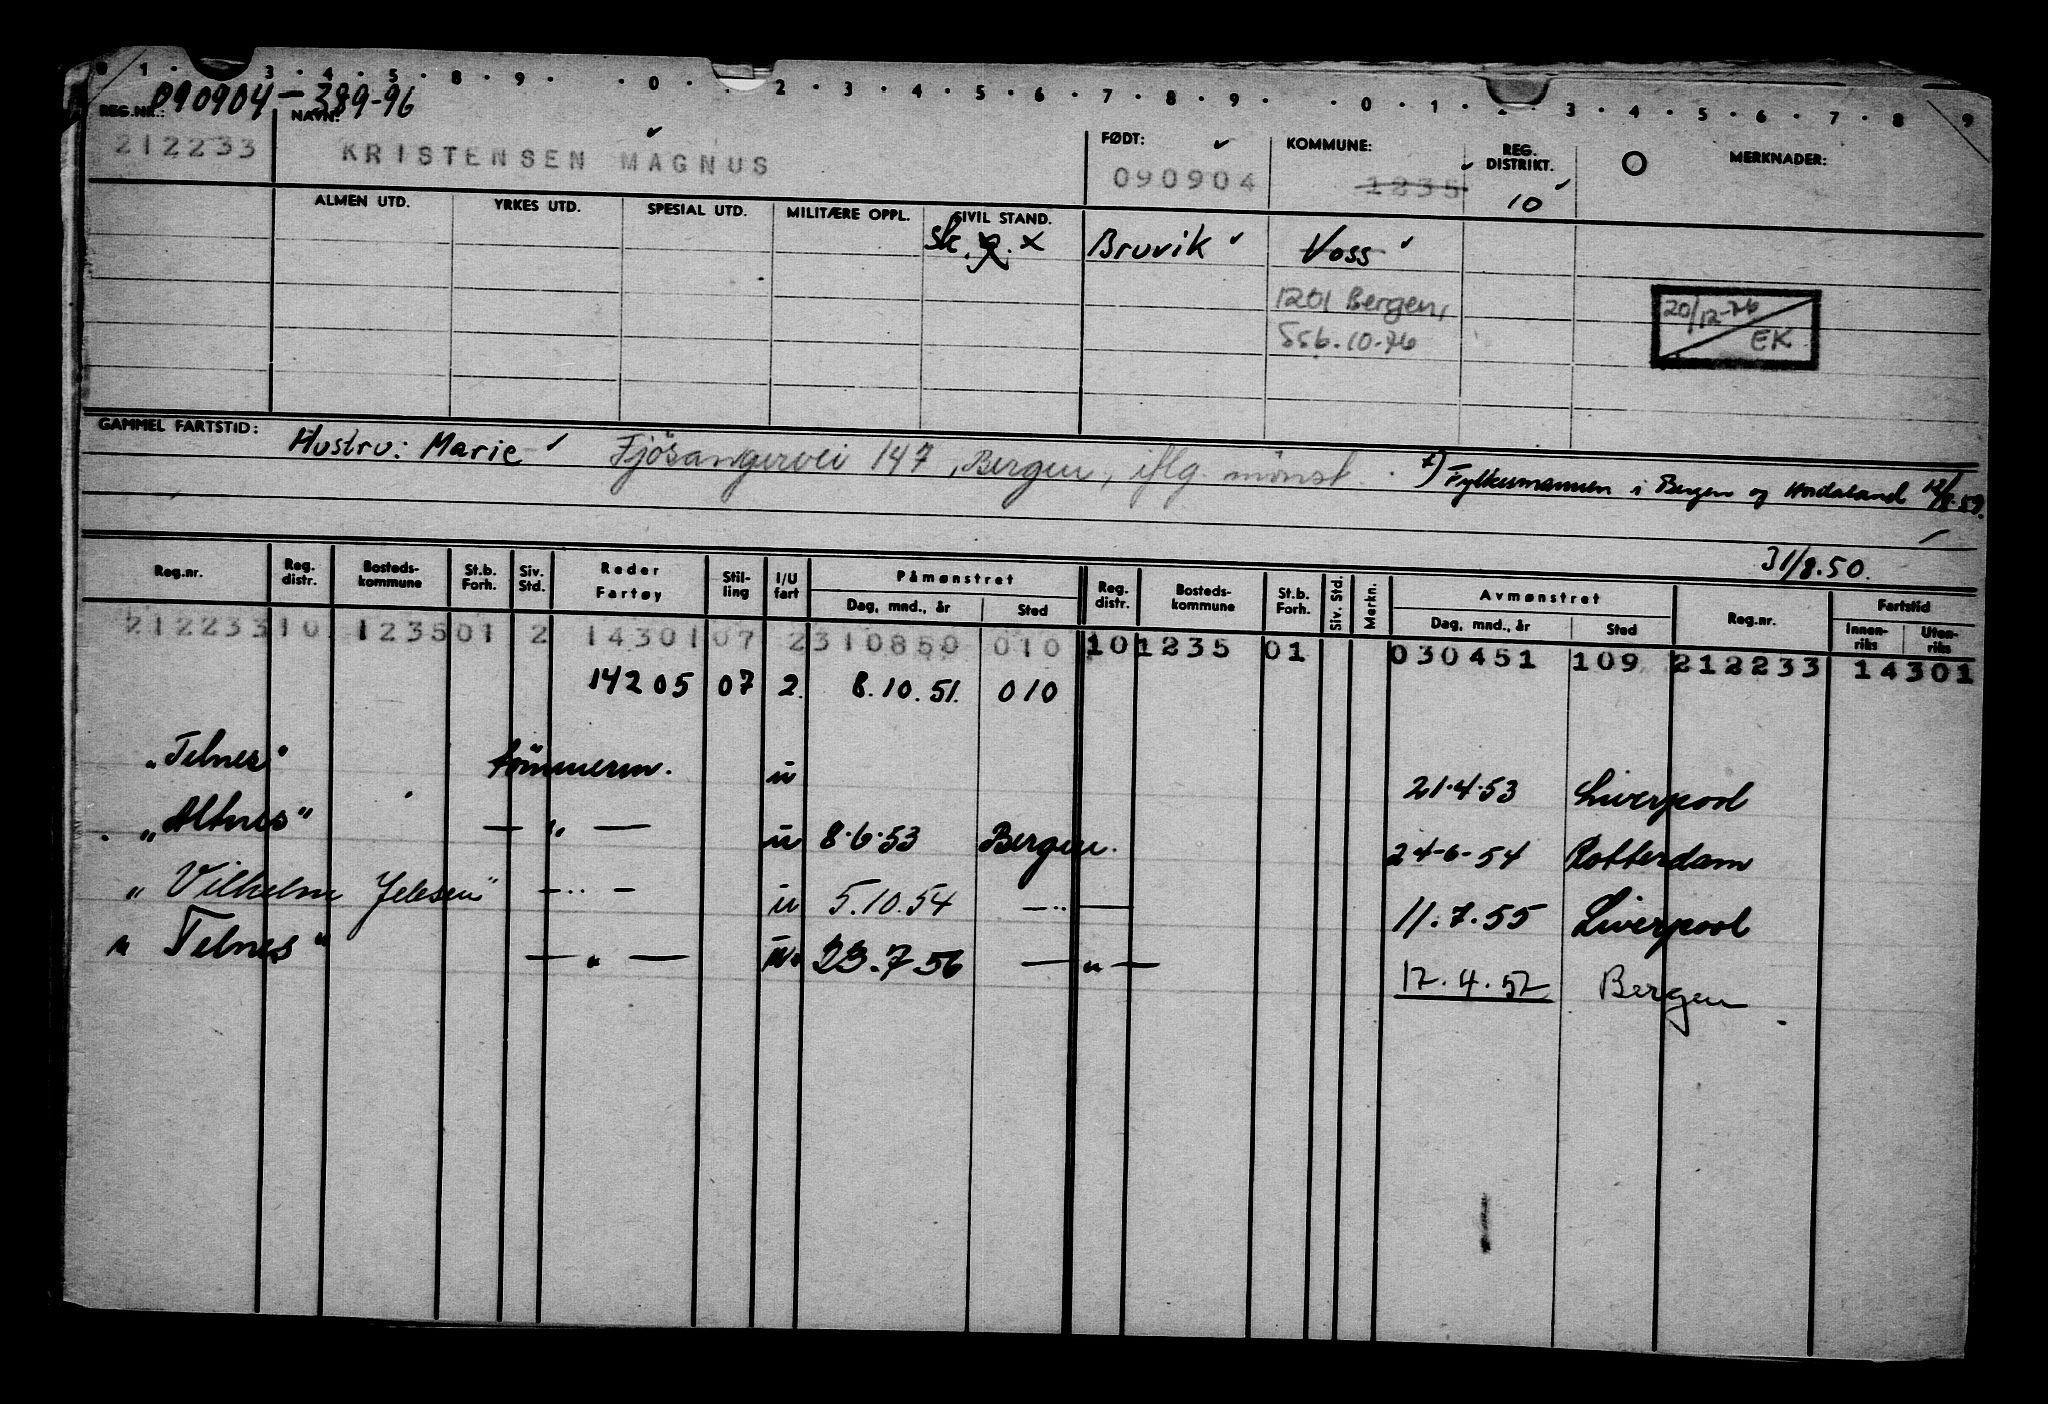 0 1 · 3 · 4 · 5 · 8 · 9 · · 0 · · 2 · 3 · 4 · 5 · 6 · 7 · 8 · 9 · · 0 · 1 · 2 · 3 · 4 · 5 · 6 · 7 · 8 · 9
090904 - 389-96
REG.NR.: NAVN: FØDT: KOMMUNE: REG. DISTRIKT. MERKNADER:
212233 KRISTENSEN MAGNUS 090904 1235 10
ALMEN UTD. YRKES UTD. SPESIAL UTD. MILITÆRE OPPL. SIVIL STAND.
Bruvik Voss
1201 Bergen,
20/12-76
556.10-76
EK
GAMMEL FARTSTID: Hustru: Marie Fjösangervei 147, Bergen, iflg. mönst. x) Fylkesmannen i Bergen og Hordaland
31/8.50.
Reg.nr. Reg. distr. Bosteds-kommune St.b. Forh. Siv. Std. Reder Fartøy Stil-ling I/U fart Påmønstret Dag, mnd., år Sted Reg. distr. Bosteds-kommune St.b. Forh. Siv. Std. Merkn. Avmønstret Dag, mnd., år Sted Reg.nr. Fartstid Innen-riks Uten-riks
212233 10 1235 01 2 14301 07 2 310850 010 10 1235 01 030451 109 212233 14301
14205 07 2 8.10.51. 010
"Telnes" tömmerm. u 21.4.53 Liverpool
"Altnes" — " — u 8.6.53 Bergen. 24-6-54 Rotterdam
"Vilhelm Jebsen" — " — u 5.10.54 — " — 11.7.55 Liverpool
"Telnes" — " — u 23.7.56 — " — 12.4.57 Bergen